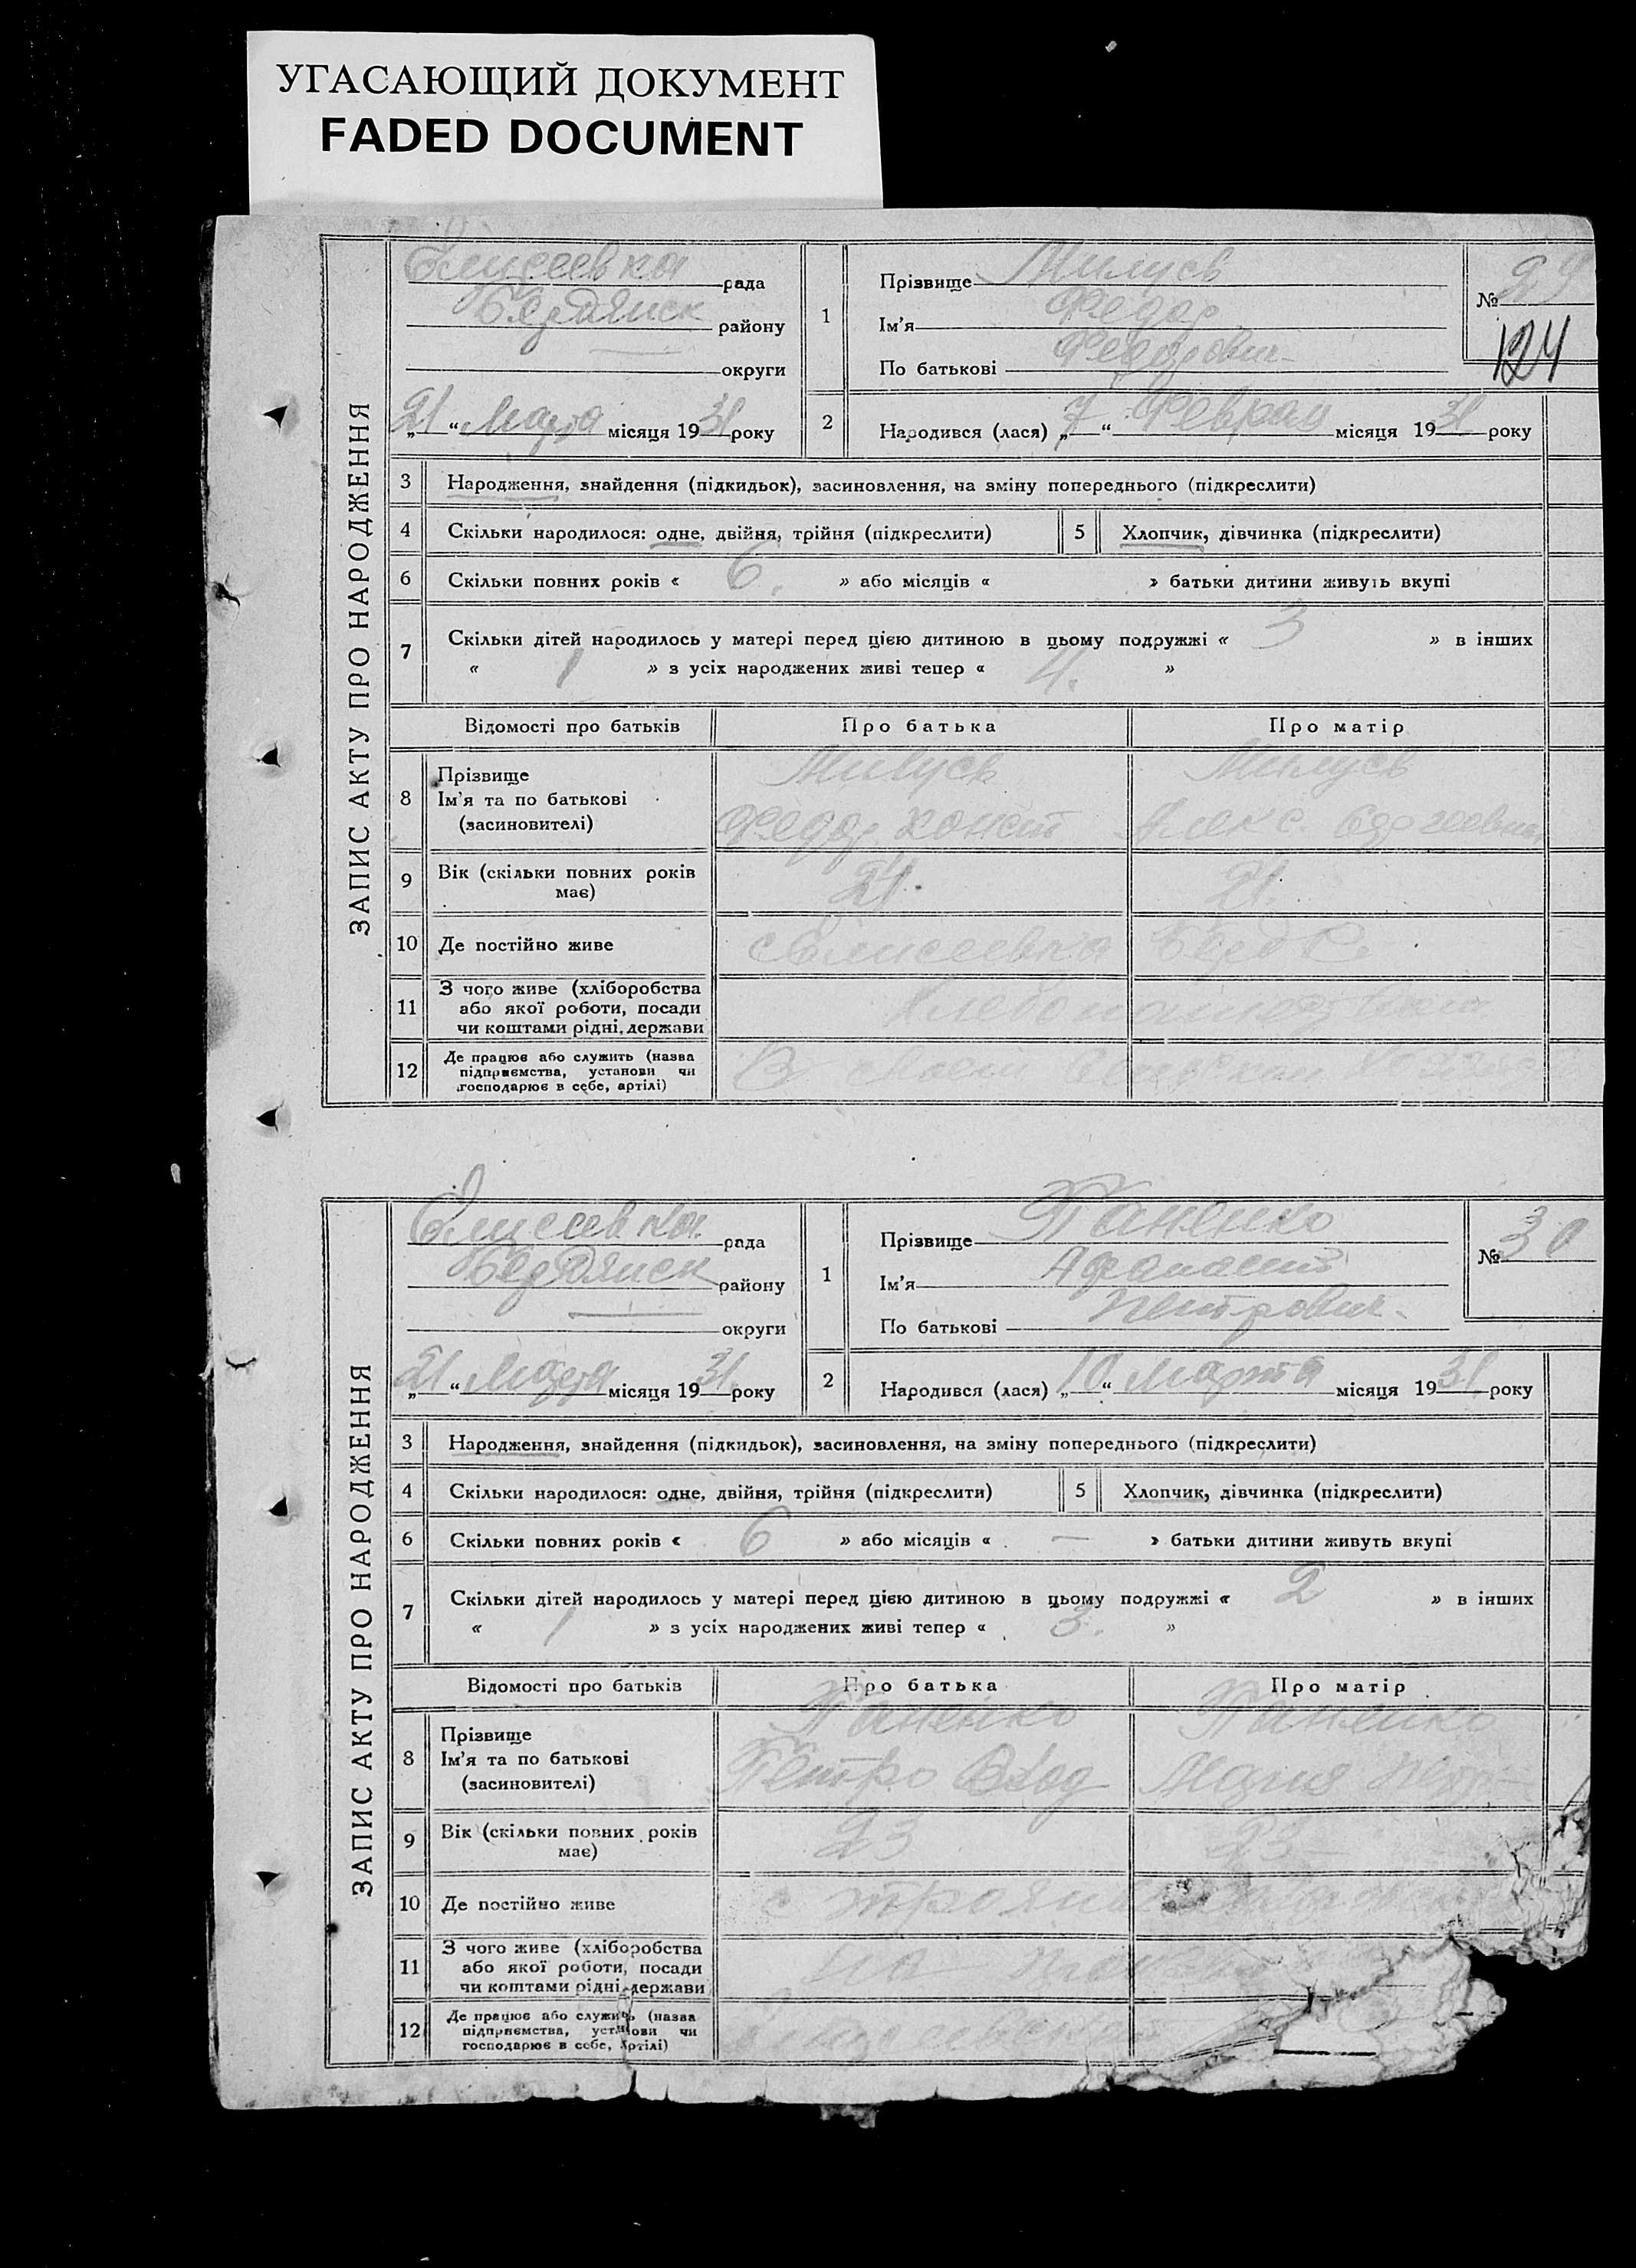 УГАСАЮЩИЙ ДОКУМЕНТ
FADED DOCUMENT
ЗАПИС АКТУ ПРО НАРОДЖЕННЯ
Елисеевка рада
Бердянск району
округи
„21“ Марта місяця 1931 року
1 Прізвище Милуев
Ім'я Федор
По батькові Федорович
№ 29
124
2 Народився (лася) „7“ Феврал місяця 1931 року
3 Народження, знайдення (підкидьок), засиновлення, на зміну попереднього (підкреслити)
4 Скільки народилося: одне, двійня, трійня (підкреслити) 5 Хлопчик, дівчинка (підкреслити)
6 Скільки повних років « 6. » або місяців « » батьки дитини живуть вкупі
7 Скільки дітей народилось у матері перед цією дитиною в цьому подружжі « 3 » в інших
« 1 » з усіх народжених живі тепер « 4. »
Відомості про батьків Про батька Про матір
8 Прізвище Милуев Милуев
Ім'я та по батькові
(засиновителі) Федор Конст Алекс.
9 Вік (скільки повних років
має) 21.
10 Де постійно живе с Елисеевка Берд
11 З чого живе (хліборобства
або якої роботи, посади
чи коштами рідні, держави
12 Де працює або служить (назва
підприємства, установи чи
господарює в себе, артілі) В
ЗАПИС АКТУ ПРО НАРОДЖЕННЯ
Елисеевка рада
Бердянск району
округи
„21“ Марта місяця 1931 року
1 Прізвище Паненко
Ім'я Афанасий
По батькові Петрович
№ 30
2 Народився (лася) „10“ марта місяця 1931 року
3 Народження, знайдення (підкидьок), засиновлення, на зміну попереднього (підкреслити)
4 Скільки народилося: одне, двійня, трійня (підкреслити) 5 Хлопчик, дівчинка (підкреслити)
6 Скільки повних років « 6 » або місяців « — » батьки дитини живуть вкупі
7 Скільки дітей народилось у матері перед цією дитиною в цьому подружжі « 2 » в інших
« 1 » з усіх народжених живі тепер « 3. »
Відомості про батьків Про батька Про матір
8 Прізвище Паненко Паненко
Ім'я та по батькові
(засиновителі) Петро Мария
9 Вік (скільки повних років
має) 23 23
10 Де постійно живе с
11 З чого живе (хліборобства
або якої роботи, посади
чи коштами рідні, держави
12 Де працює або служить (назва
підприємства, установи чи
господарює в себе, артілі)